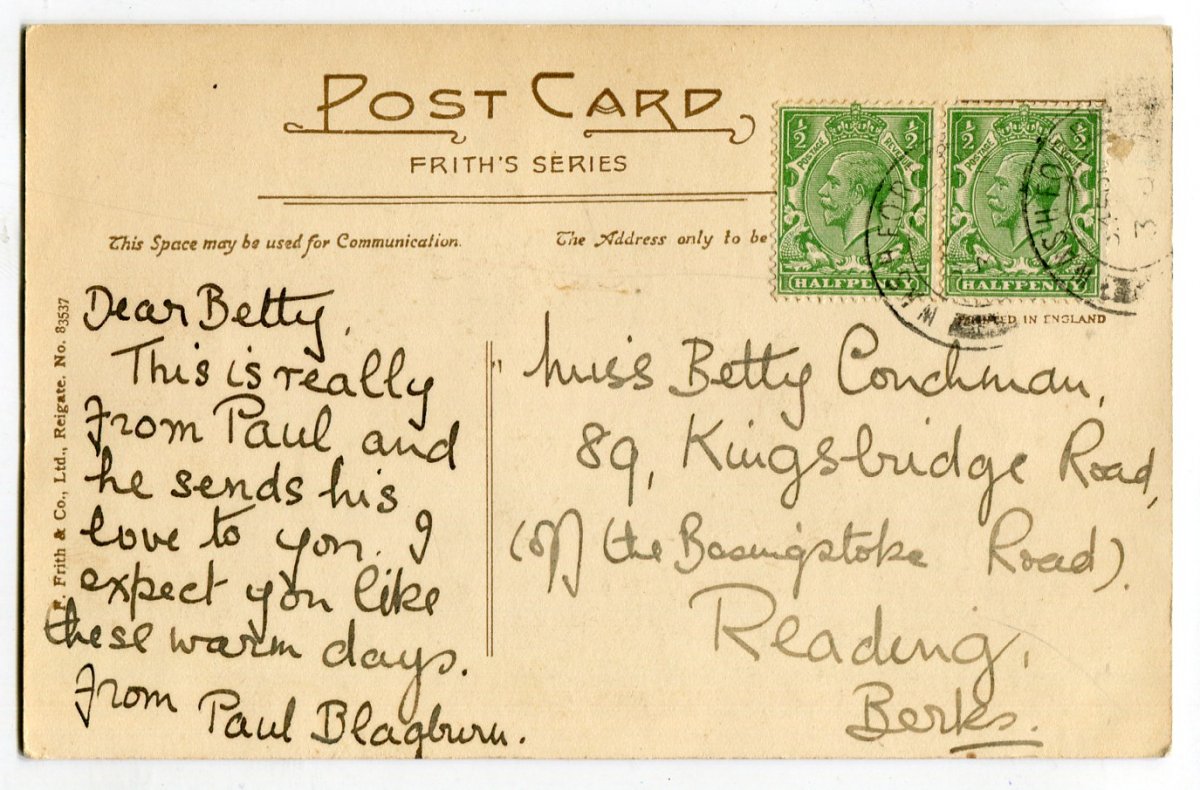 POST CARD
FRITH'S SERIES
This Space may be used for Communication.
The Address only to be
½ ½
POSTAGE REVENUE
HALFPENNY
½ ½
POSTAGE REVENUE
HALFPENNY
WASHFORD
WASHFORD
PRINTED IN ENGLAND
F. Frith & Co., Ltd., Reigate. No. 83537
Dear Betty,
This is really
from Paul and
he sends his
love to you. I
expect you like
these warm days.
From Paul Blagburn.
Miss Betty Couchman,
89, Kingsbridge Road,
(off the Basingstoke Road).
Reading,
Berks.